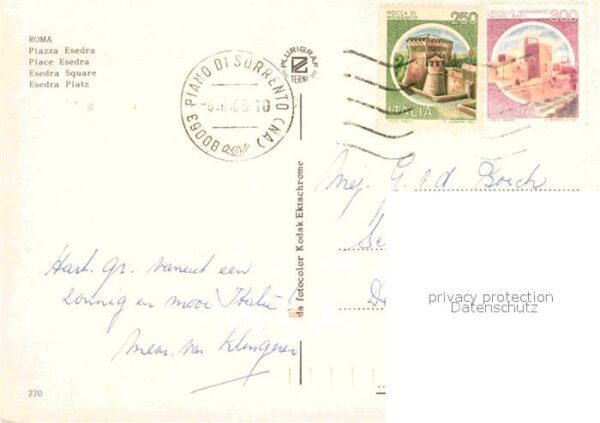 ROMA
Piazza Esedra
Place Esedra
Esedra Square
Esedra Platz
80063 PIANO DI SORRENTO (NA)
PLURIGRAF
TERNI
ROCCA DI
MONDAVIO
250
ITALIA
CASTELLO NORMANNO
300
ITALIA
da fotocolor Kodak Ektachrome
Mej. G. v d Borch
Hart. gr. vanuit een
zonnig en mooi Italië!
Mevr. van Klingeren
privacy protection
Datenschutz
270